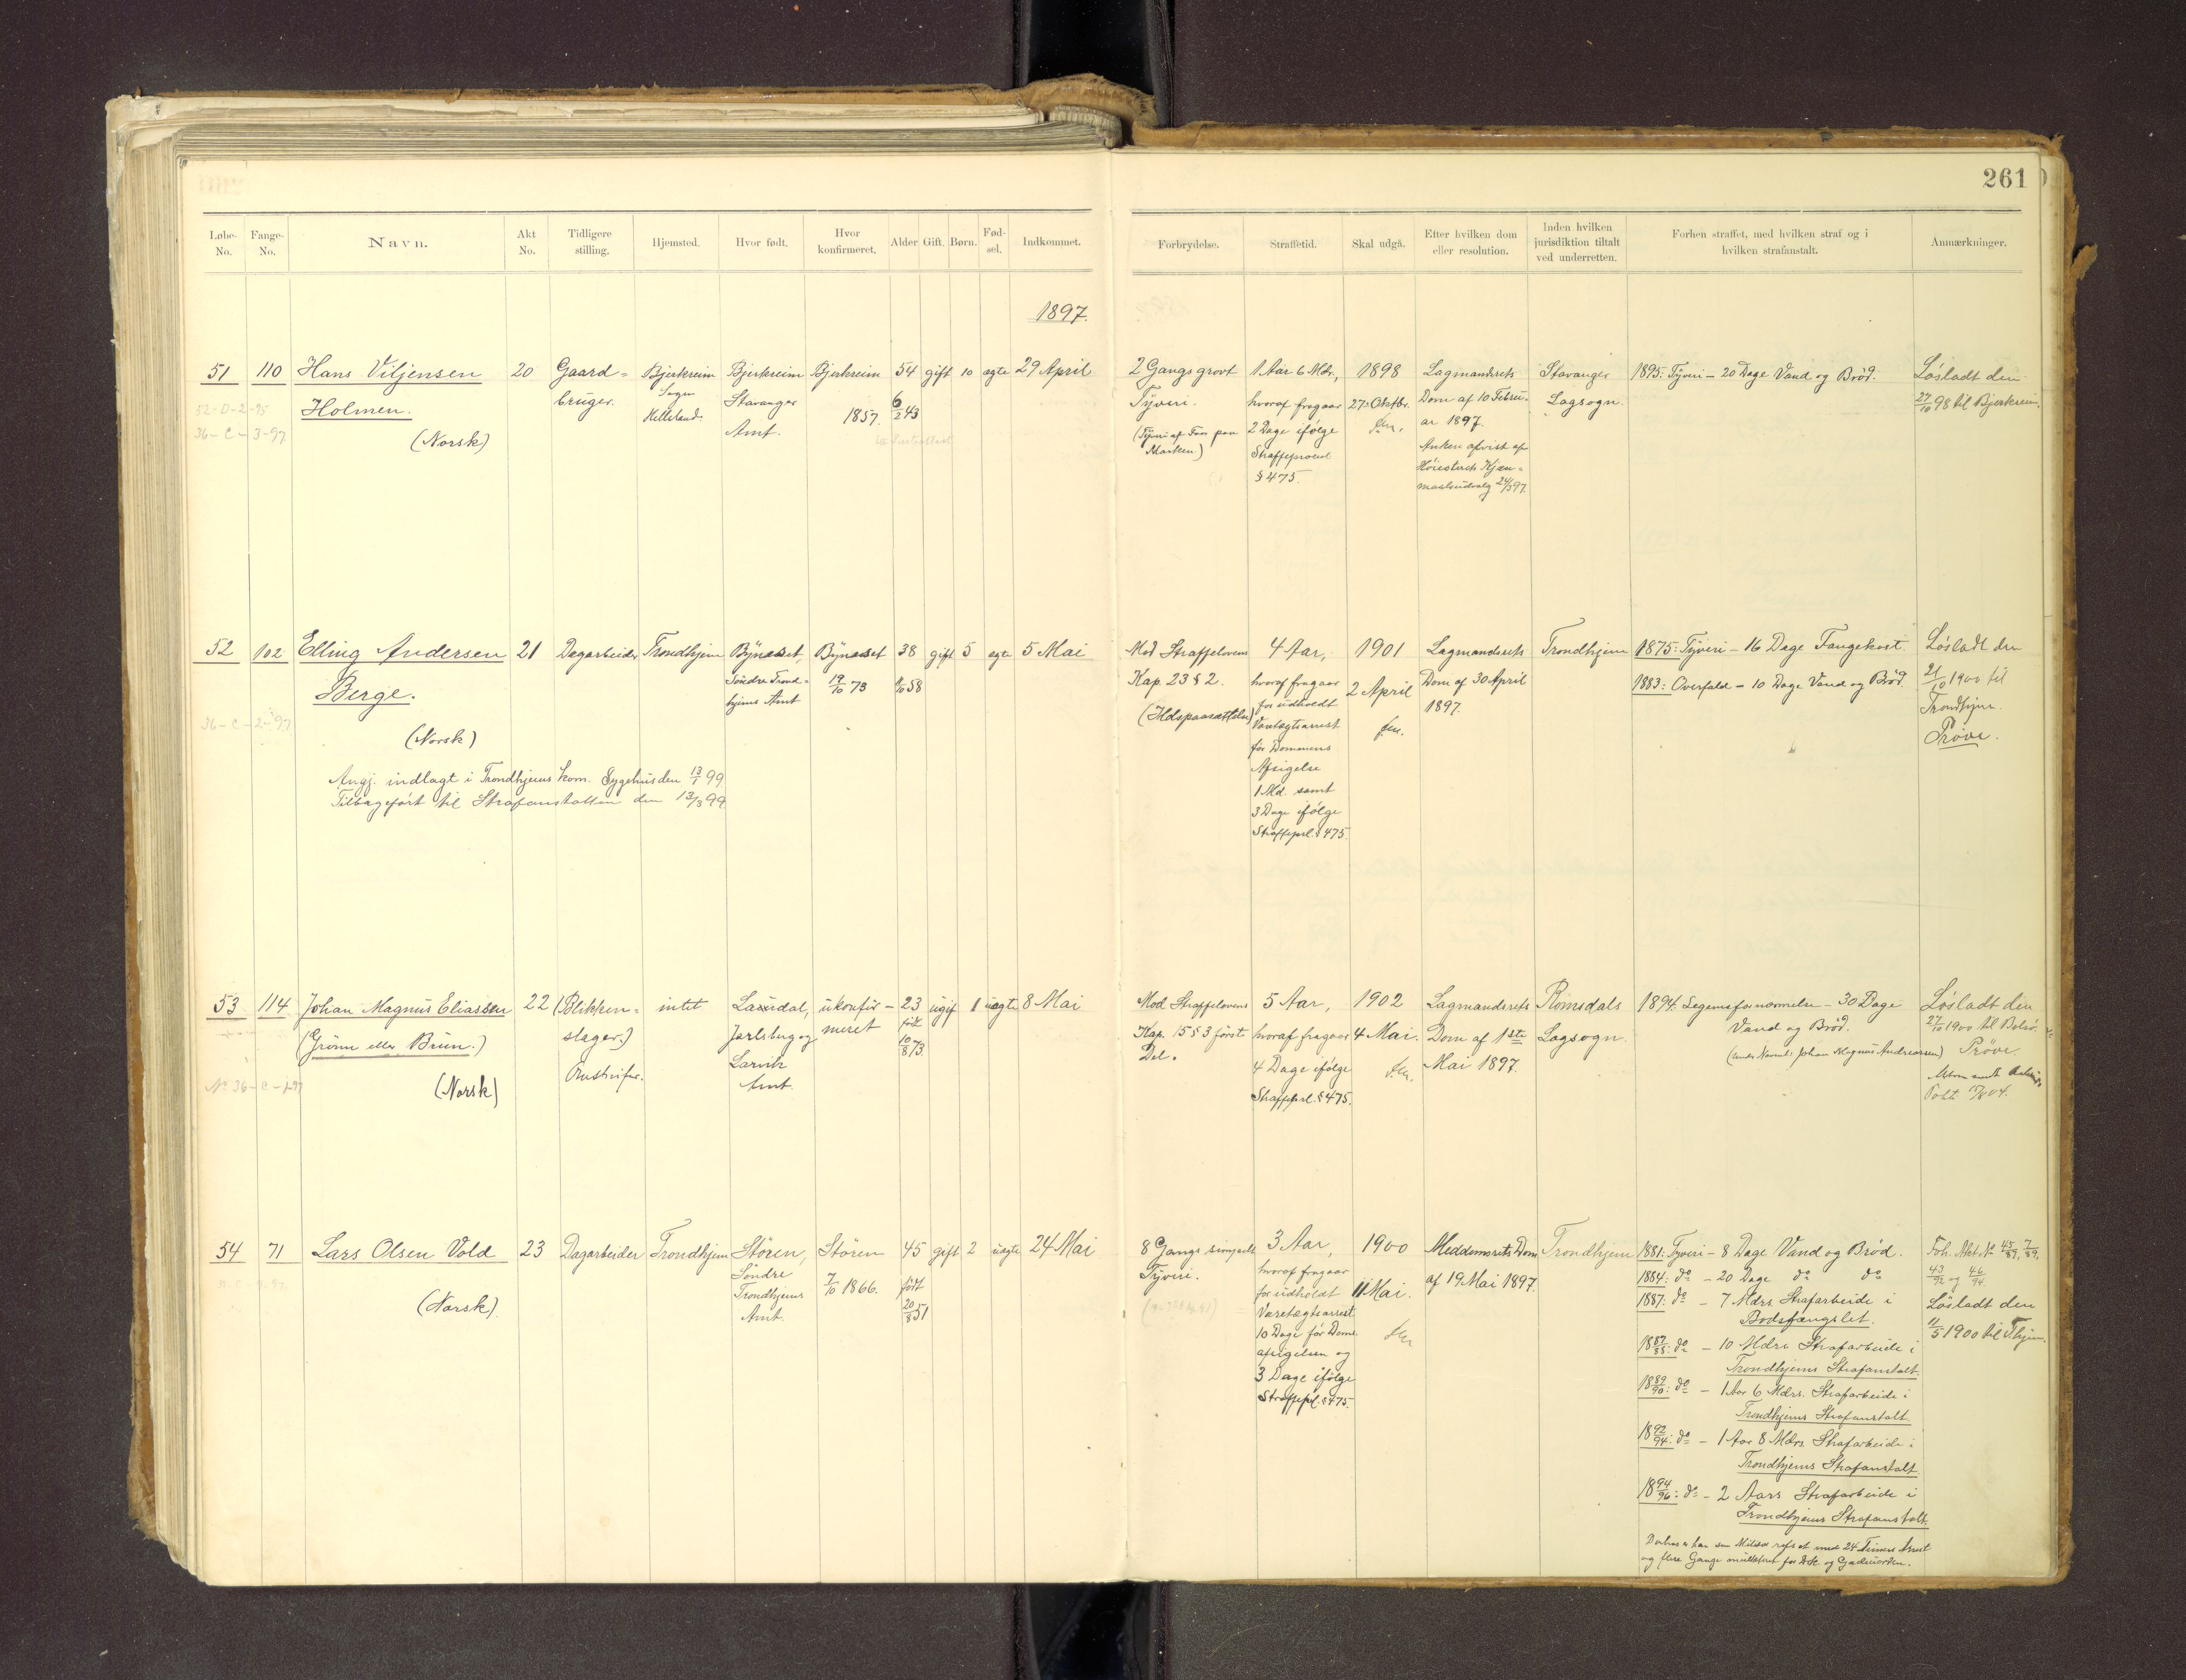 261
Løbe-No.
Fange-No.
Navn.
Akt No.
Tidligere stilling.
Hjemsted.
Hvor født.
Hvor konfirmeret.
Alder
Gift.
Børn.
Fød-sel.
Indkommet.
Forbrydelse.
Straffetid.
Skal udgå.
Efter hvilken dom eller resolution.
Inden hvilken jurisdiktion tiltalt ved underretten.
Forhen straffet, med hvilken straf og i hvilken strafanstalt.
Anmærkninger.
1897.
51 110 Hans Viljensen 20 Gaard- Bjerkreim Bjerkreim Bjerkreim 54 gift 10 ægte 29 April
Holmen. bruger. Sogn Stavanger 1857. 6/2 43
52-D-2-95
36-C-3-97
(Norsk) Helleland. Amt.
2 Gangs grovt
Tyveri.
(Tyveri af Faar paa
Marken)
1 Aar 6 Mdr.,
hvoraf fragaar
2 Dage ifølge
Straffeprocesl
§ 475.
1898
27 Oktbr.
fm.
Lagmandsrets
Dom af 10 Febru-
ar 1897.
Anken afvist af
Høiesterets Kjæ-
remaalsudvalg 24/3 97.
Stavanger
Lagsogn.
1895: Tyveri - 20 Dage Vand og Brød.
Løsladt den
27/10 98 til Bjerkreim.
52 102 Elling Andersen 21 Dagarbeider Trondhjem Bynæsset, Bynæsset 38 gift 5 ægte 5 Mai
Berge. Søndre Trond- 19/10 73 /10 58
hjems Amt
36-C-2-97
(Norsk)
Angj. indlagt i Trondhjems kom. Sygehus den 13/1 99
Tilbageført til Strafanstalten den 13/3 99
Mod Straffelovens
Kap. 23 § 2.
(Ildspaasættelse)
4 Aar,
hvoraf fragaar
for udholdt
Varetægtsarrest
før Dommens
Afsigelse
1 Md. samt
3 Dage ifølge
Straffeprl. § 475.
1901
2 April
fm.
Lagmandsrets
Dom af 30 April
1897.
Trondhjem
1875: Tyveri - 16 Dage Fangekost.
1883: Overfald - 10 Dage Vand og Brød.
Løsladt den
21/10 1900 til
Trondhjem.
Prøve.
53 114 Johan Magnus Eliassen 22 (Blikken- intet Laurdal, ukonfir- 23 ugift 1 uægte 8 Mai
(Grønn eller Brun.) slager.) Jarlsberg og meret født
No 36-C-1-97
(Norsk) Larvik 10/8 73.
Amt.
Mod Straffelovens
Kap. 15 § 3 først
Del.
5 Aar,
hvoraf fragaar
4 Dage ifølge
Straffeprl. § 475.
1902
4 Mai.
fm.
Lagmandsrets
Dom af 1ste
Mai 1897.
Romsdals
Lagsogn.
1894: Legemsfornærmelse - 30 Dage
Vand og Brød.
(under Navnet: Johan Magnus Andreassen)
Løsladt den
27/10 1900 til
Prøve
54 71 Lars Olsen Vold 23 Dagarbeider Trondhjem Støren, Støren 45 gift 2 uægte 24 Mai
Søndre 7/10 1866. født
Trondhjems 20/8 51
(Norsk). Amt.
8 Gangs simpelt
Tyveri.
3 Aar,
hvoraf fragaar
for udholdt
Varetægtsarrest
10 Dage før Doms-
afsigelsen og
3 Dage ifølge
Straffeprl. § 475.
1900
11 Mai.
fm
Meddomsrets Dom
af 19 Mai 1897.
Trondhjem
1881: Tyveri - 8 Dage Vand og Brød.
1884: do - 20 Dage do do
1887: do - 7 Mdrs. Strafarbeide i
Bodsfængslet.
1887/88: do - 10 Mdrs Strafarbeide i
Trondhjems Strafanstalt.
1889/90: do - 1 Aar 6 Mdrs. Strafarbeide i
Trondhjems Strafanstalt.
1892/94: do - 1 Aar 8 Mdrs. Strafarbeide i
Trondhjems Strafanstalt.
1894/96: do - 2 Aars Strafarbeide i
Trondhjems Strafanstalt.
24 Timers Arrest
og flere Gange mulkteret for Drik og Gadeuorden.
Foh. Akt. No 45/87, 7/89,
43/92 og 46/94.
Løsladt den
11/5 1900 til Thjem.